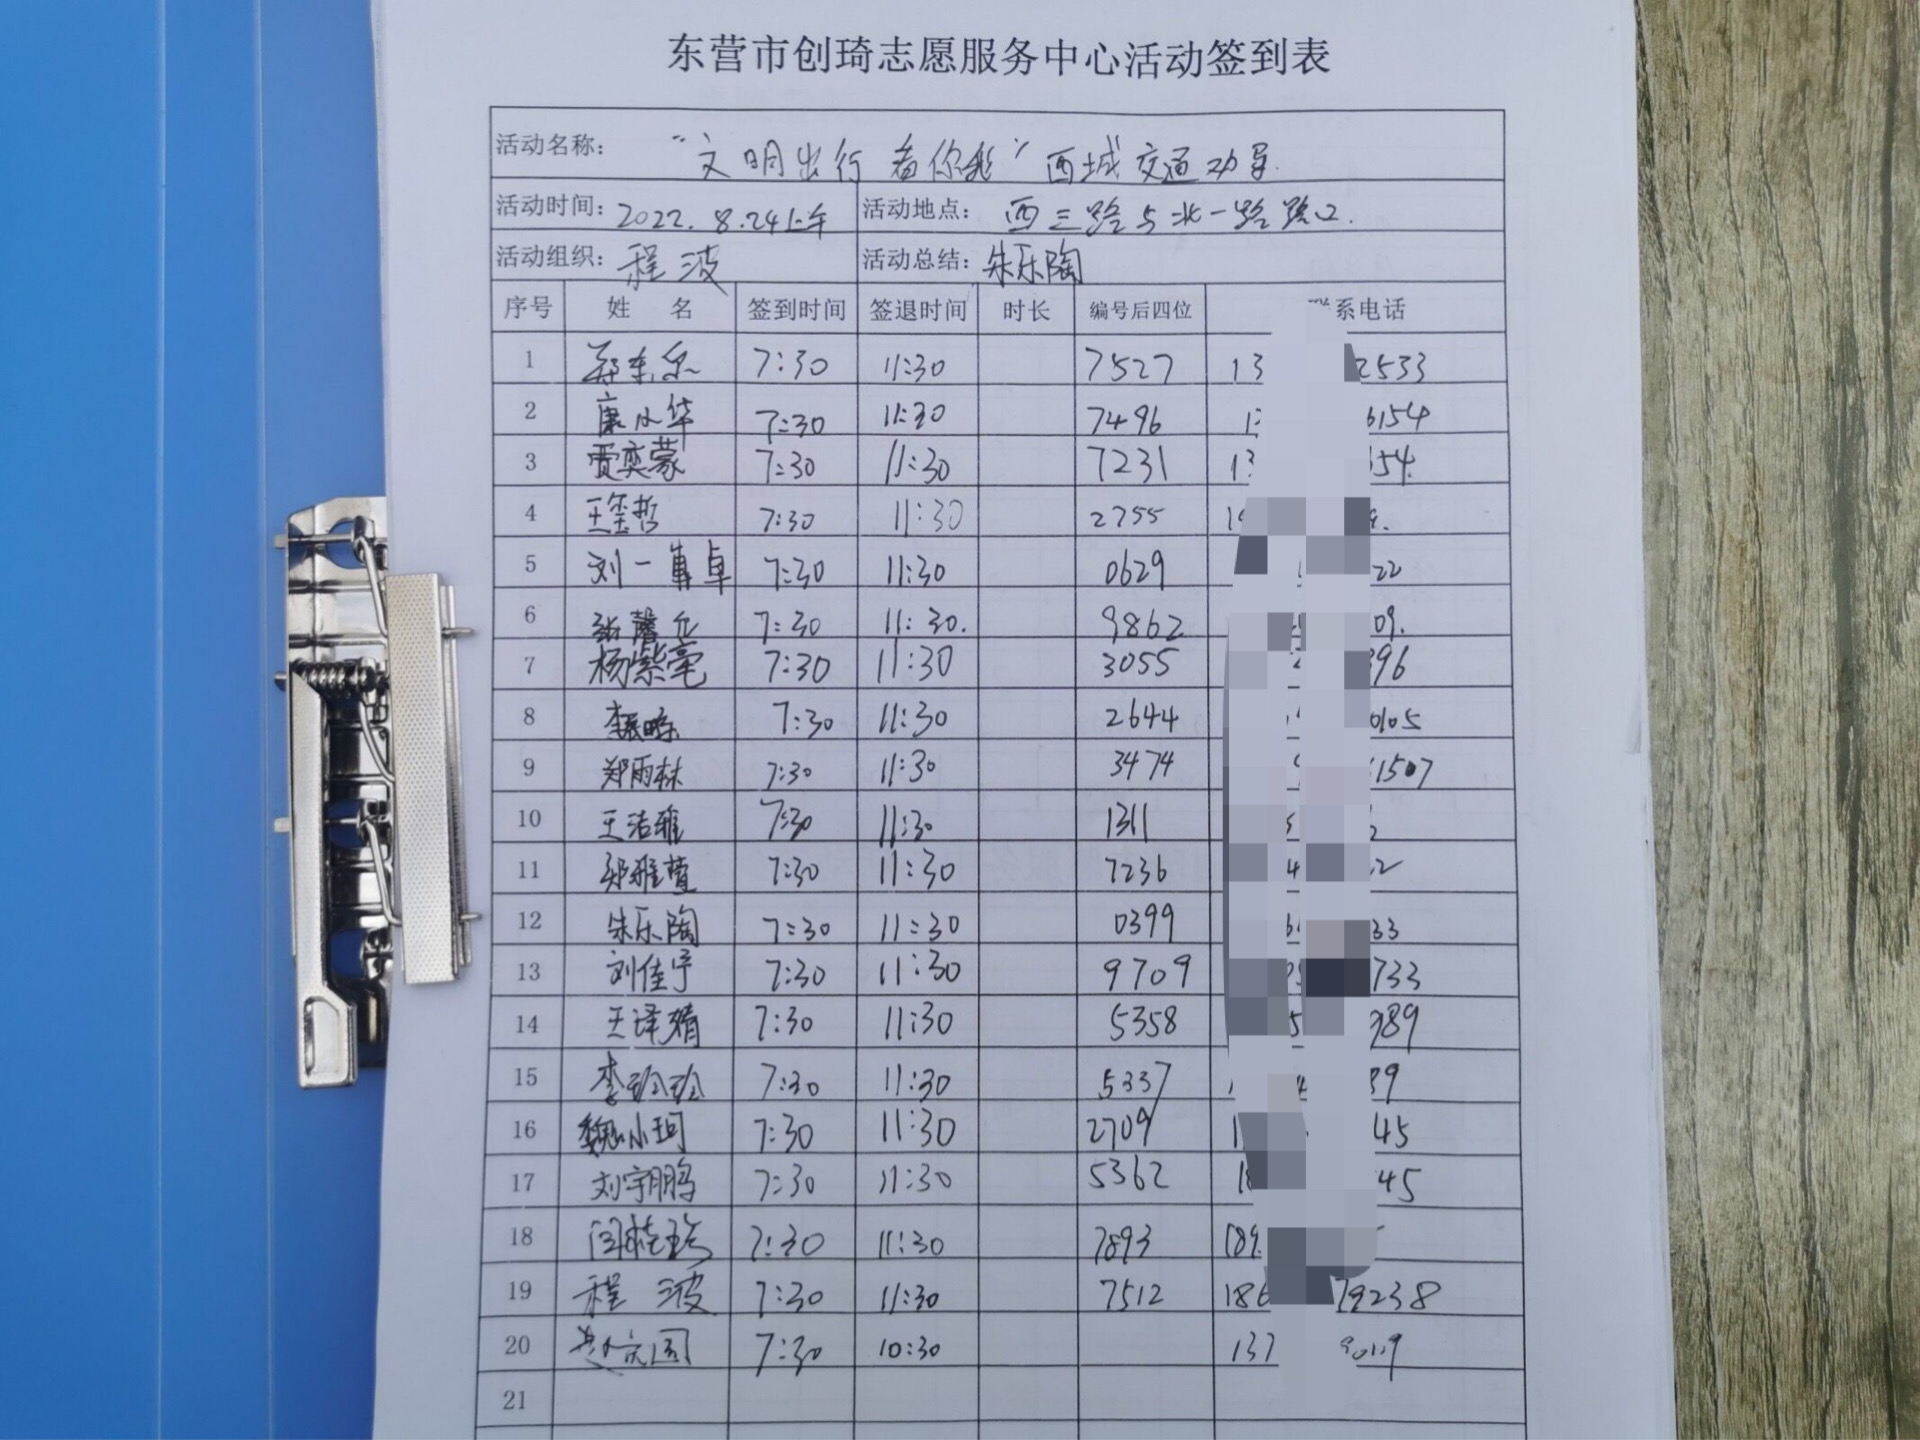 东营市创琦志愿服务中心活动签到表
活动名称： “文明出行 看你我” 西城交通劝导.
活动时间：2022.8.24上午 活动地点： 西三路与北一路路口.
活动组织：程波 活动总结：朱乐陶
序号 姓 名 签到时间 签退时间 时长 编号后四位 系电话
1 郑东乐 7:30 11:30 7527 13 2533
2 康小华 7:30 11:30 7496 6154
3 贾奕蒙 7:30 11:30 7231 13 54.
4 王玺哲 7:30 11:30 2755
5 刘一 卓 7:30 11:30 0629 22
6 张馨 7:30 11:30. 9862 09.
7 杨紫毫 7:30 11:30 3055 396
8 李 7:30 11:30 2644 0105
9 郑雨林 7:30 11:30 3474 1507
10 王洁雅 7:30 11:30 1311
11 郑雅萱 7:30 11:30 7236
12 朱乐陶 7:30 11:30 0399 33
13 刘佳宁 7:30 11:30 9709 733
14 王译婧 7:30 11:30 5358 389
15 李玲玲 7:30 11:30 5337 39
16 魏小珂 7:30 11:30 2709 45
17 刘宇鹏 7:30 11:30 5362 45
18 闫桂珍 7:30 11:30 7893 189
19 程 波 7:30 11:30 7512 186 79238
20 庆国 7:30 10:30 137 9019
21